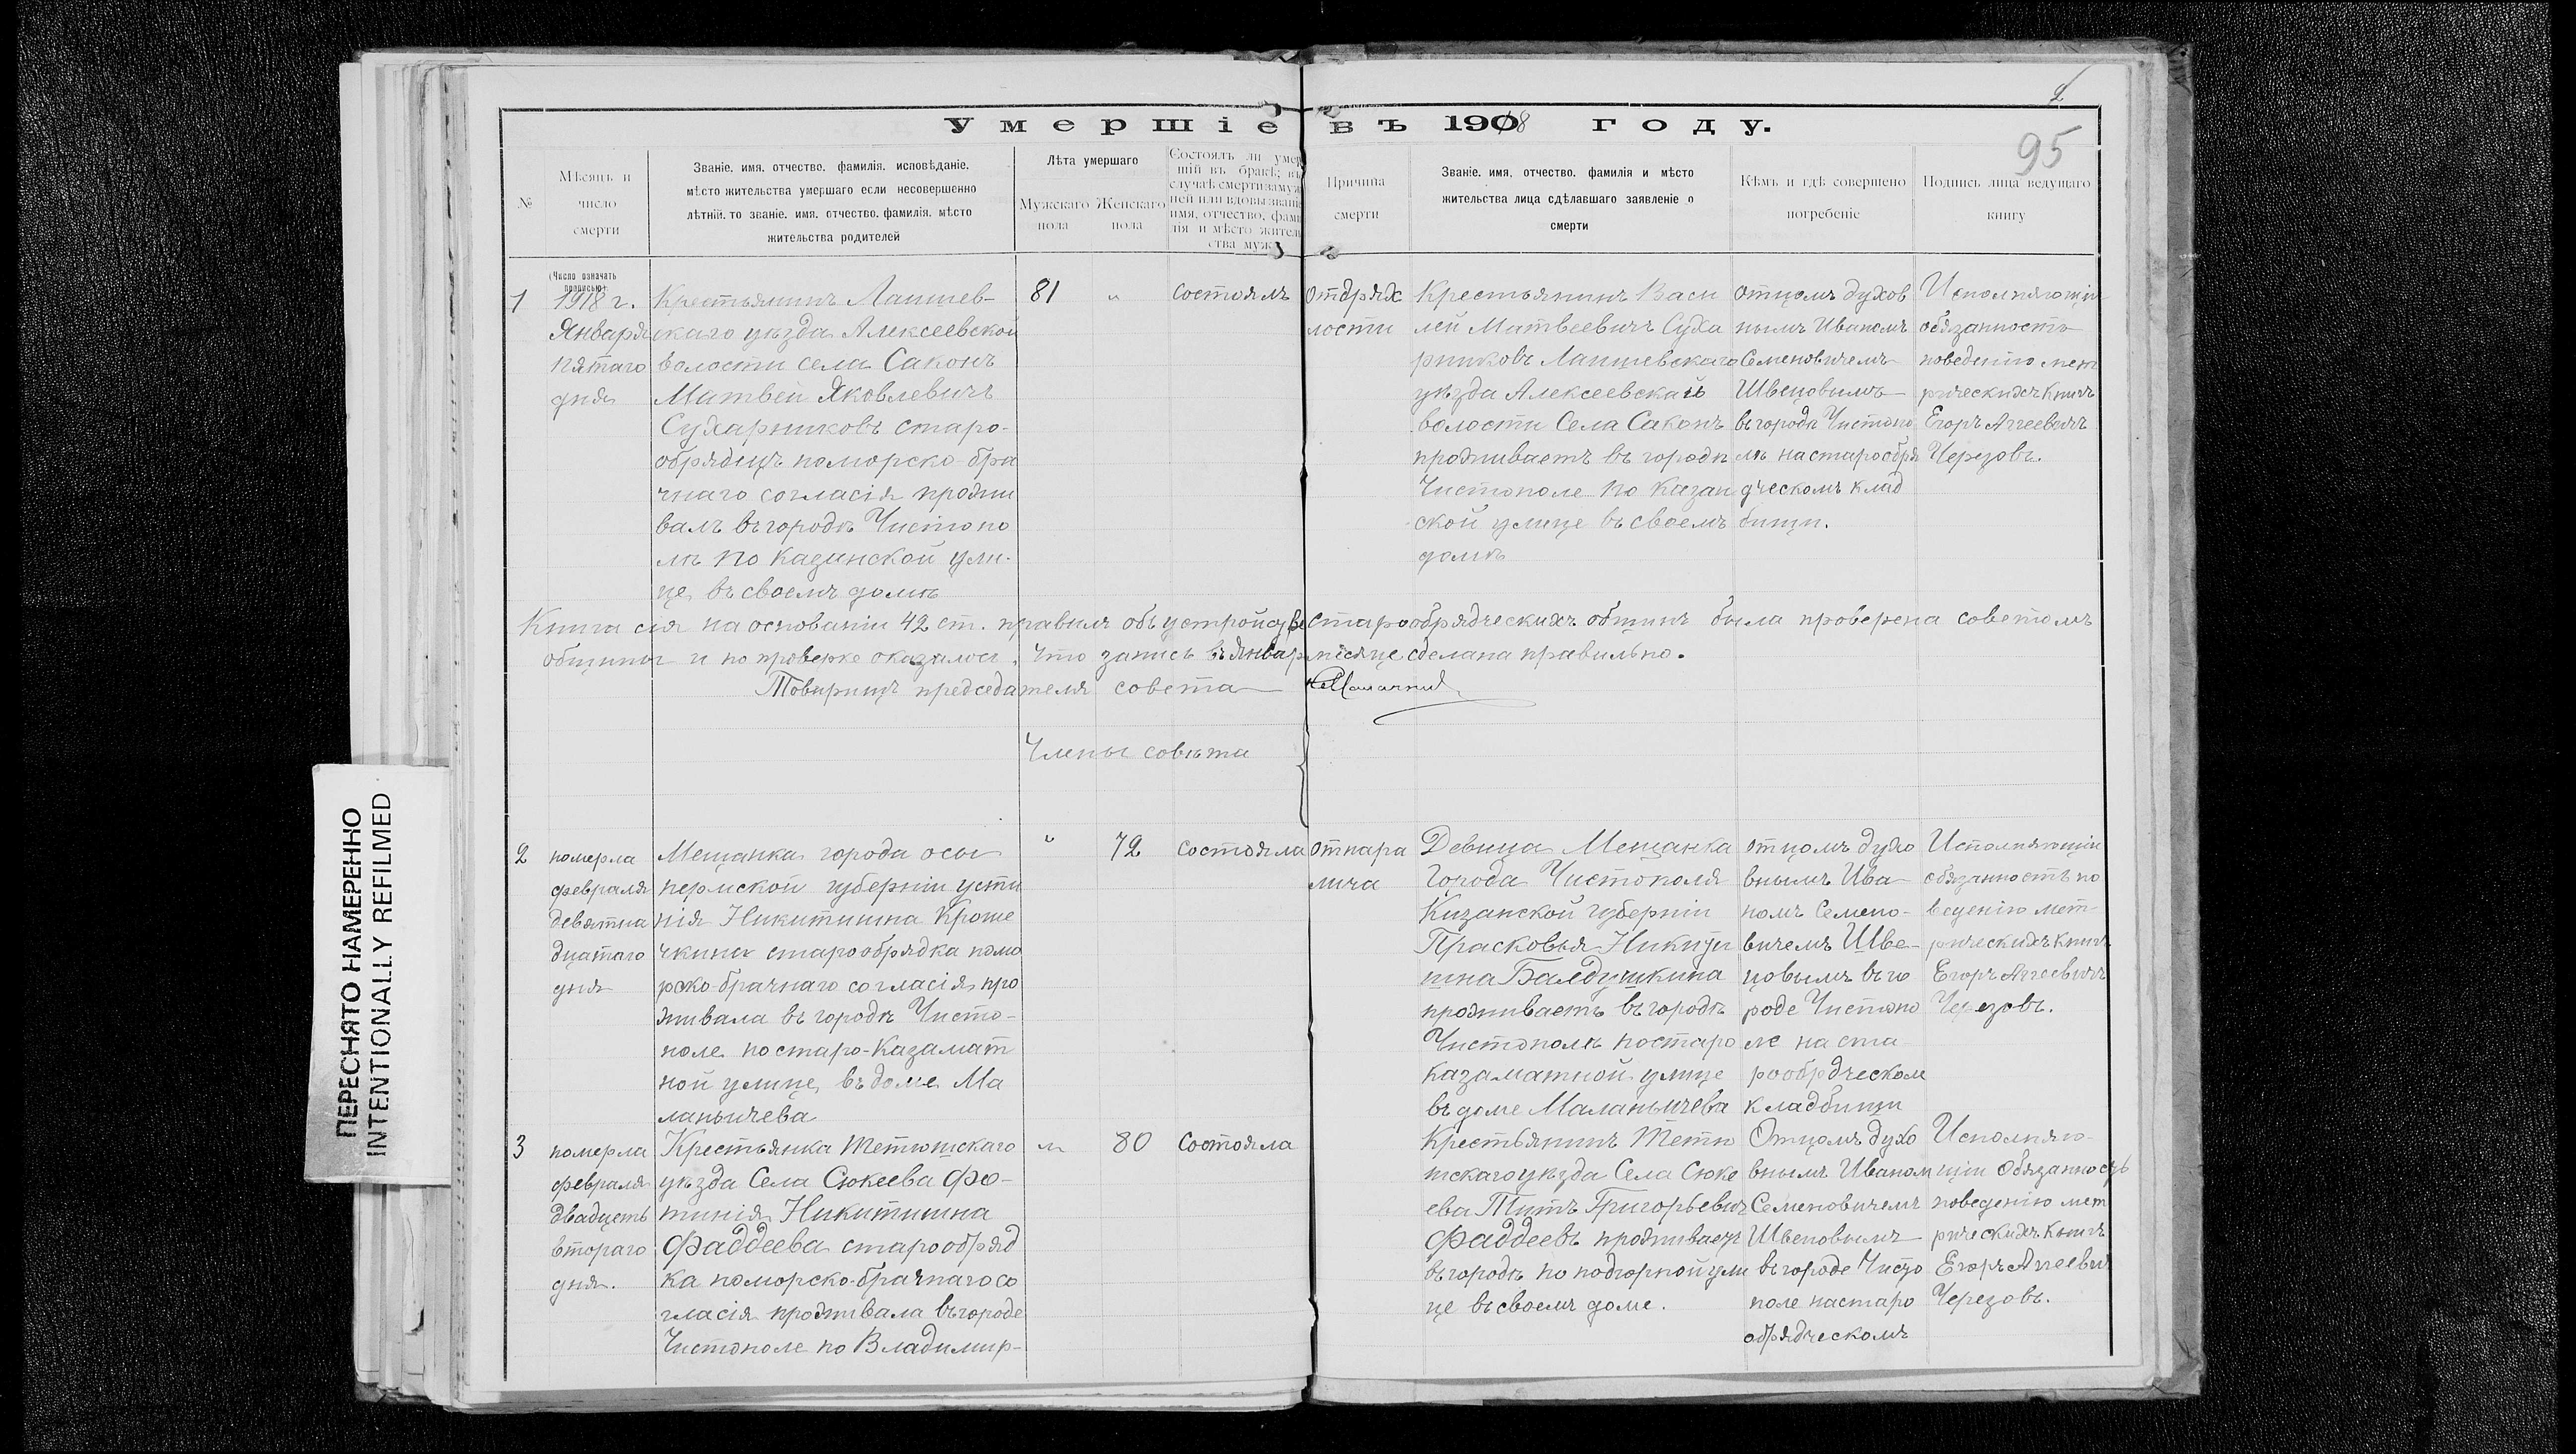 ПЕРЕСНЯТО НАМЕРЕННО
INTENTIONALLY REFILMED
2
95
Умершіе въ 1908 году.
№
Мѣсяцъ и
число
смерти
Званіе. имя. отчество. фамилія. исповѣданіе.
мѣсто жительства умершаго если несовершенно
лѣтній. то званіе. имя. отчество. фамилія. мѣсто
жительства родителей
Лѣта умершаго
Мужскаго
пола
Женскаго
пола
Состоялъ ли умер
шій въ бракѣ; въ
случаѣ смерти замуж
ней или вдовы званіе
имя, отчество, фами
лія и мѣсто житель
ства мужа
Причина
смерти
Званіе. имя. отчество. фамилія и мѣсто
жительства лица сдѣлавшаго заявленіе о
смерти
Кѣмъ и гдѣ совершено
погребеніе
Подпись лица ведущаго
книгу
(Число означать
прописью)
1
1918 г.
Января
пятаго
дня
Крестьянинъ Лаишев-
скаго уѣзда Алексеевской
волости села Саконъ
Матвей Яковлевичъ
Сухарниковъ старо-
обрядецъ поморско-бра
чнаго согласія прожи
валъ въ городѣ Чистопо
лѣ по Казанской ули-
це въ своемъ домѣ
81
"
состоялъ
отдрях
лости
Крестьянинъ Васи
лей Матвеевичъ Суха
рниковъ Лаишевскаго
уѣзда Алексеевской
волости Села Саконъ
проживаетъ въ городѣ
Чистополе по Казан
ской улице въ своемъ
домѣ
отцомъ духов
нымъ Иваномъ
Семеновичемъ
Швецовымъ
въ городѣ Чистопо
лѣ на старообря
дческомъ клад
бищи.
Исполняющій
обязанность
поведению мет
рическихъ книгъ
Егоръ Аггеевичъ
Черезовъ.
Книга сія на основаніи 42 ст. правилъ объ устройстве старообрядческихъ общинъ была проверена советомъ
общины и по проверке оказалось, что запись въ январ месяце сделана правильно.
Товарищъ председателя совета
Члены совѣта
2
померла
февраля
девятна
дцатаго
дня
Мещанка города осы
пермской губерніи усти
нія Никитишна Кроше
чкина старообрядка помо
рско-брачнаго согласія про
живала въ городѣ Чисто-
поле по старо-Казамат
ной улице, въ доме Ма
ланьичева
"
72
состояла
отпара
лича
Девица Мещанка
Города Чистополя
Казанской губерніи
Прасковья
Балдушкина
проживаетъ въ городѣ
Чистополѣ постаро
казаматной улице
въ доме Маланьичева
отцомъ духо
внымъ Ива
номъ Семено-
вичемъ Шве-
цовымъ въ го
роде Чистопо
ле на ста
рообрдческом
кладбищи
Исполняющій
обязанность по
веденію мет-
рическихъ книгъ
Егоръ Аггеевичъ
Черезовъ.
3
померла
февраля
двадцеть
втораго
дня.
Крестьянка Тетюшскаго
уѣзда Села Сюкеева Фо-
тинія Никитишна
Фаддеева старообряд
ка поморско-брачнаго со
гласія проживала въ городе
Чистополе по Владимир-
"
80
Состояла
Крестьянинъ Тетю
шскаго уѣзда Села Сюке
ева Титъ Григорьевичъ
Фаддеевъ проживаетъ
въ городѣ по подгорной ули
це въ своемъ доме.
Отцомъ духо
внымъ Иваном
Семеновичемъ
Швецовымъ
въ городе Чисто
поле настаро
обрядческомъ
Исполняю-
щій обязанность
поведенію мет
рическихъ книгъ
Егоръ Аггеевич
Черезовъ.